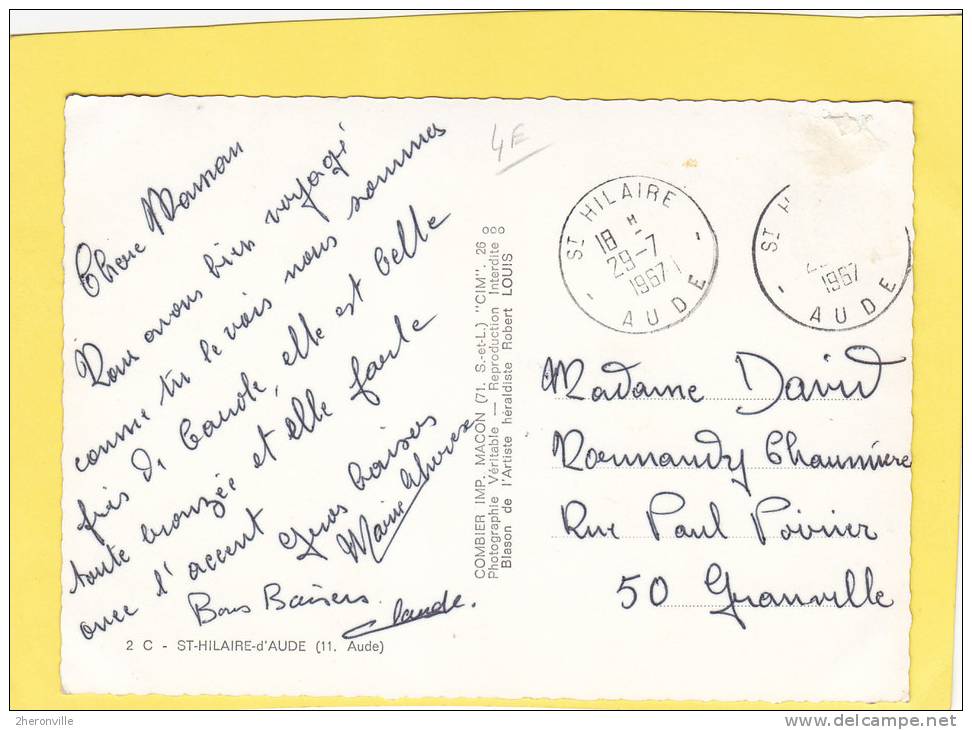 Chère Maman
Nous avons bien voyagé
comme tu le vois nous sommes
près de Carole, elle est belle
toute bronzée et elle parle
avec l'accent Gros baisers
Marie Thérèse
Bons Baisers.
Claude.
2 C - ST-HILAIRE-d'AUDE (11. Aude)
4E
COMBIER IMP. MACON (71. S.-et-L.) "CIM". 26
Photographie Véritable — Reproduction Interdite
Blason de l'Artiste héraldiste Robert LOUIS
ST HILAIRE
18 H
29-7
1967
AUDE
ST H
1967
AUDE
Madame David
Normandy Chaumière
Rue Paul Poirier
50 Granville
2heronville
www.delcampe.net